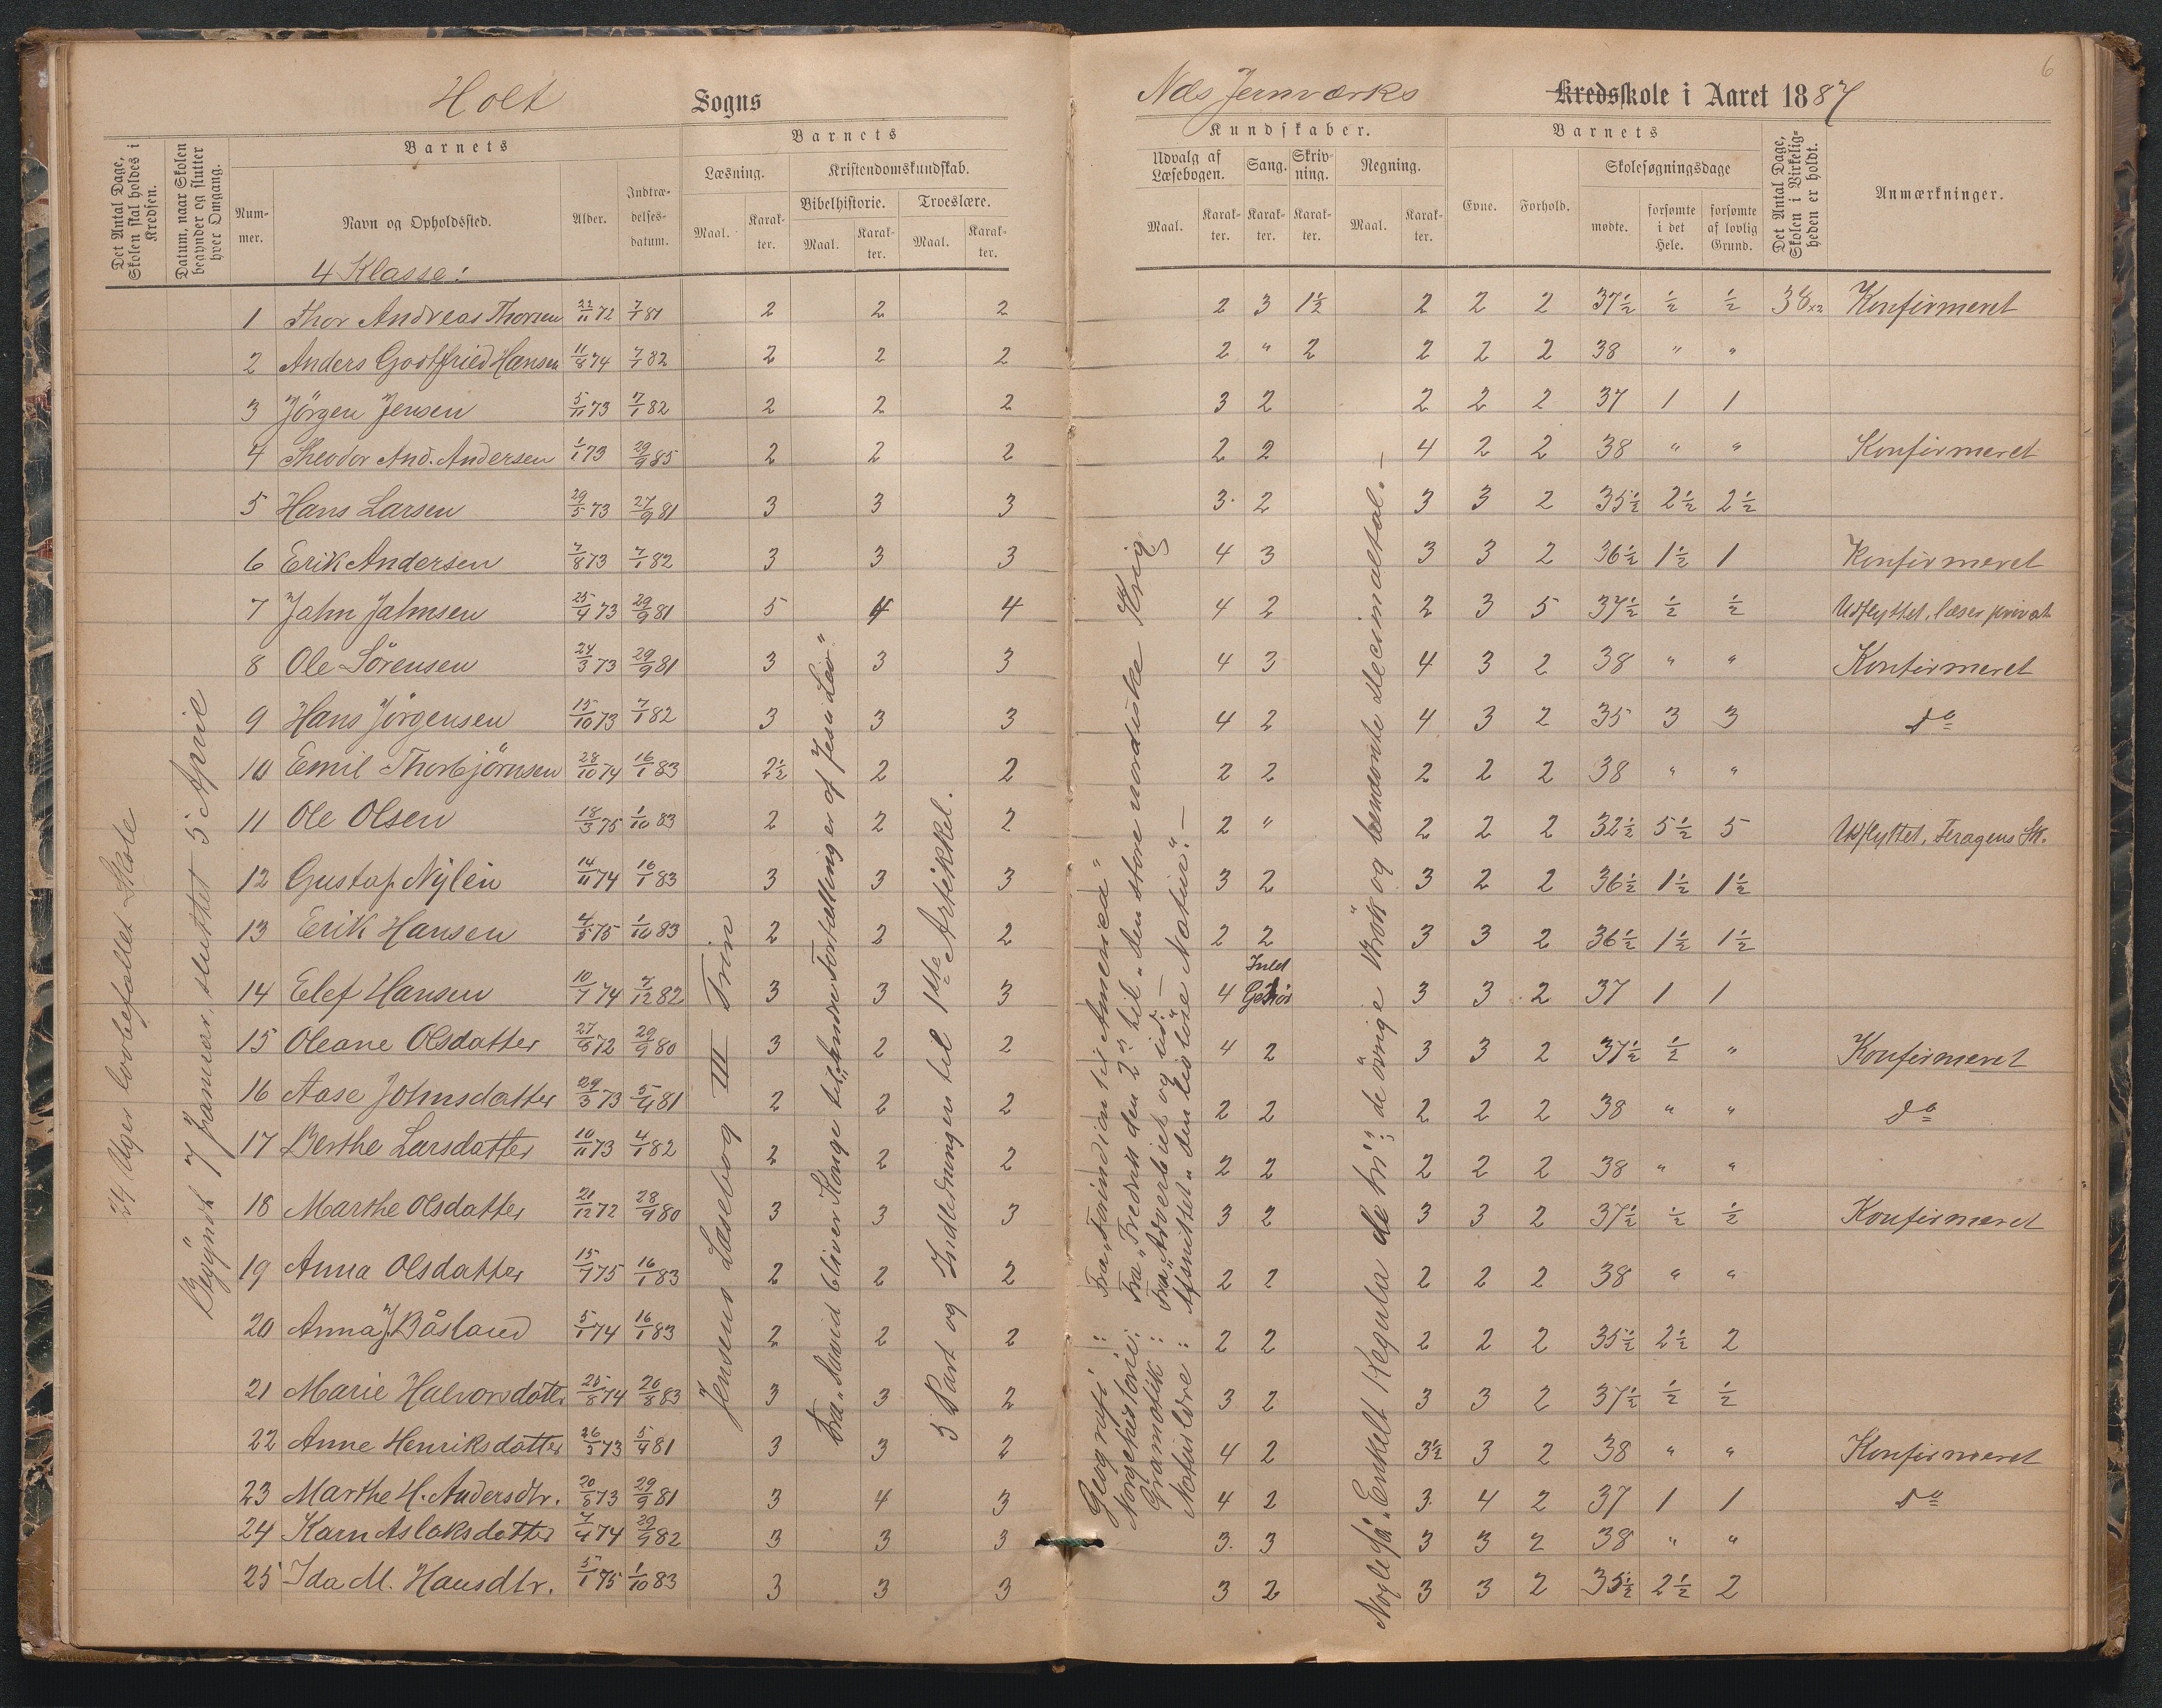 6
Holt Sogns
Næs Jernværks Kredsskole i Aaret 1887
Det Antal Dage, Skolen skal holdes i Kredsen.
Datum, naar Skolen begynder og slutter hver Omgang.
Barnets
Num-
mer.
Navn og Opholdssted.
Alder.
Indtræ-
delses-
datum.
Barnets
Læsning.
Maal.
Karak-
ter.
Kristendomskundskab.
Bibelhistorie.
Maal.
Karak-
ter.
Troeslære.
Maal.
Karak-
ter.
Kundskaber.
Udvalg af
Læsebogen.
Maal.
Karak-
ter.
Sang.
Karak-
ter.
Skriv-
ning.
Karak-
ter.
Regning.
Maal.
Karak-
ter.
Barnets
Evne.
Forhold.
Skolesøgningsdage
mødte.
forsømte
i det
Hele.
forsømte
af lovlig
Grund.
Det Antal Dage, Skolen i Virkelig-heden er holdt.
Anmærkninger.
4 Klasse:
1 Thor Andreas Thorsen 22/11 72 7/1 81 2 2 2 2 3 1½ 2 2 2 37½ ½ ½ 38 x2 Konfirmeret
2 Anders Godtfried Hansen 11/8 74 7/1 82 2 2 2 2 " 2 2 2 2 38 " "
3 Jörgen Jensen 5/11 73 7/1 82 2 2 2 3 2 2 2 2 37 1 1
4 Theodor And. Andersen 1/1 73 29/9 85 2 2 2 2 2 4 2 2 38 " " Konfirmeret
5 Hans Larsen 29/5 73 27/9 81 3 3 3 3 2 3 3 2 35½ 2½ 2½
6 Erik Andersen 7/8 73 7/1 82 3 3 3 4 3 3 3 2 36½ 1½ 1 Konfirmeret
7 Jahn Jahnsen 25/4 73 29/9 81 5 4 4 4 2 2 3 5 37½ ½ ½ Udflyttet, læser privat
8 Ole Sörensen 24/3 73 29/9 81 3 3 3 4 3 4 3 2 38 " " Konfirmeret
9 Hans Jörgensen 15/10 73 7/1 82 3 3 3 4 2 4 3 2 35 3 3 do
10 Emil Thorbjörnsen 28/10 74 16/1 83 2½ 2 2 2 2 2 2 2 38 " "
11 Ole Olsen 18/3 75 1/10 83 2 2 2 2 " 2 2 2 32½ 5½ 5 Udflyttet, Feragens Sk.
12 Gustaf Nylén 14/11 74 16/1 83 3 3 3 3 2 3 2 2 36½ 1½ 1½
13 Erik Hansen 4/5 75 1/10 83 2 2 2 2 2 3 3 2 36½ 1½ 1½
14 Elef Hansen 10/7 74 7/12 82 3 3 3 4 Intet Gehör 3 3 2 37 1 1
15 Oleane Olsdatter 27/8 72 29/9 80 3 2 2 4 2 3 3 2 37½ ½ " Konfirmeret
16 Aase Johnsdatter 29/3 73 5/4 81 2 2 2 2 2 2 2 2 38 " " do
17 Berthe Larsdatter 10/11 73 4/1 82 2 2 2 2 2 2 2 2 38 " "
18 Marthe Olsdatter 21/12 72 28/9 80 3 3 3 3 2 3 3 2 37½ ½ ½ Konfirmeret
19 Anna Olsdatter 15/7 75 16/1 83 2 2 2 2 2 2 2 2 38 " "
20 Anna J. Båsland 5/1 74 16/1 83 2 2 2 2 2 2 2 2 35½ 2½ 2
21 Marie Halvorsdatter 25/8 74 26/8 83 3 3 2 3 2 3 3 2 37½ ½ ½
22 Anne Henriksdatter 26/5 73 5/4 81 3 3 2 4 2 3½ 3 2 38 " " Konfirmeret
23 Marthe H. Andersdtr. 20/8 73 29/9 81 3 4 3 4 2 3 4 2 37 1 1 do
24 Karn Aslaksdatter 7/4 74 29/9 82 3 3 3 3 3 3 3 2 38 " "
25 Ida M. Hansdtr. 5/1 75 1/10 83 3 3 3 3 2 3 3 2 35½ 2½ 2
24 Uger lovbefallet Skole
Begyndt 7 januar, sluttet 5 April
Jensens Læsebog III Trin
Fra "David bliver Konge" til "Andre Fortællinger af Jesu Liv"
5 Part og Indledningen til 1ste Artikkel.
Geografi: Fra "Forindien" til "Amerika"
Norgehistorie: Fra "Fredrik den 2n" til "Den store nordiske Krig
Gramatik: Fra "Adverbiet og ud. —
Naturlære: Afsnittet "Den livlöse Natur". —
Nogle få "Enkelt Regula de tri"; de övrige Brök og benævnte Decimaltal. —